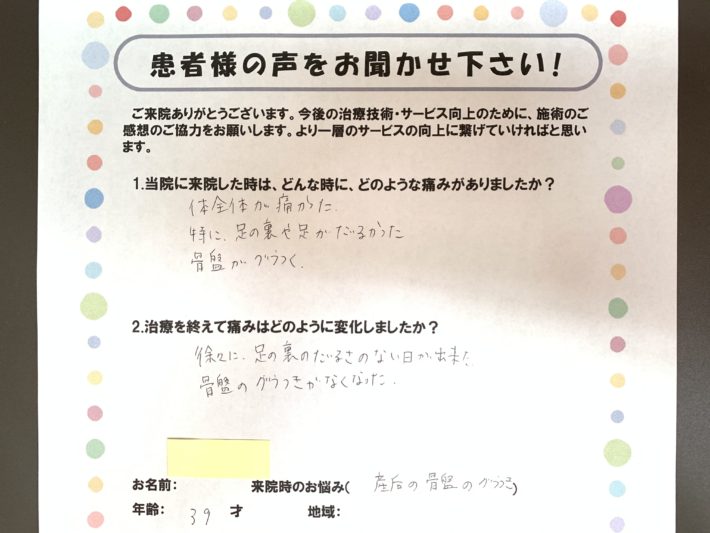 患者様の声をお聞かせ下さい!
ご来院ありがとうございます。今後の治療技術・サービス向上のために、施術のご
感想のご協力をお願いします。より一層のサービスの向上に繋げていければと思い
ます。
1.当院に来院した時は、どんな時に、どのような痛みがありましたか?
体全体が痛かった.
特に、足の裏や足がだるかった
骨盤がグラつく.
2.治療を終えて痛みはどのように変化しましたか?
徐々に、足の裏のだるさのない日が出来た.
骨盤のグラつきがなくなった.
お名前: 来院時のお悩み( 産后の骨盤のグラつき)
年齢: 39 才 地域: